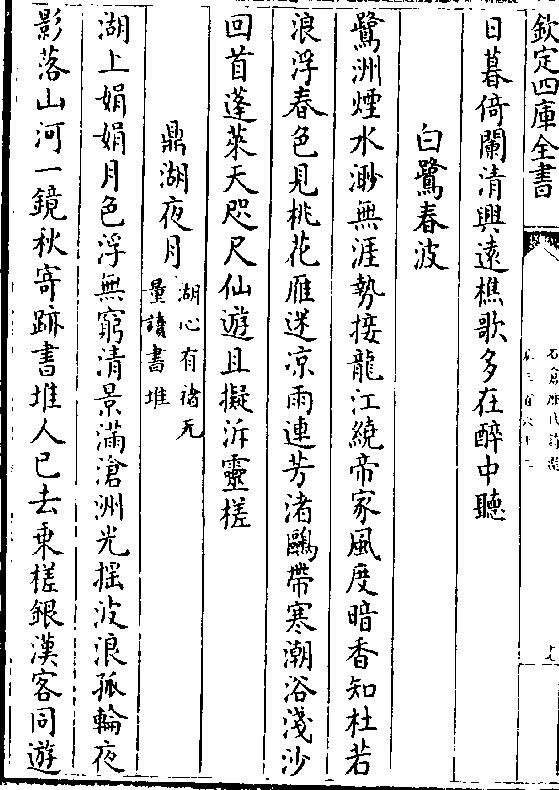 欽定四庫全書
日暮倚闌清興遠樵歌多在醉中聽
白鷺春波
鷺洲煙水渺無涯勢接龍江繞帝家風度暗香知杜若
浪浮春色見桃花雁迷凉雨連芳渚鷗帶寒潮浴淺沙
回首蓬萊天咫尺仙遊且擬泝靈槎
鼎湖夜月
湖心有禇无
量讀書堆
湖上娟娟月色浮無窮清景滿滄洲光揺波浪孤輪夜
影落山河一鏡秋寄跡書堆人已去乗槎銀漢客同遊